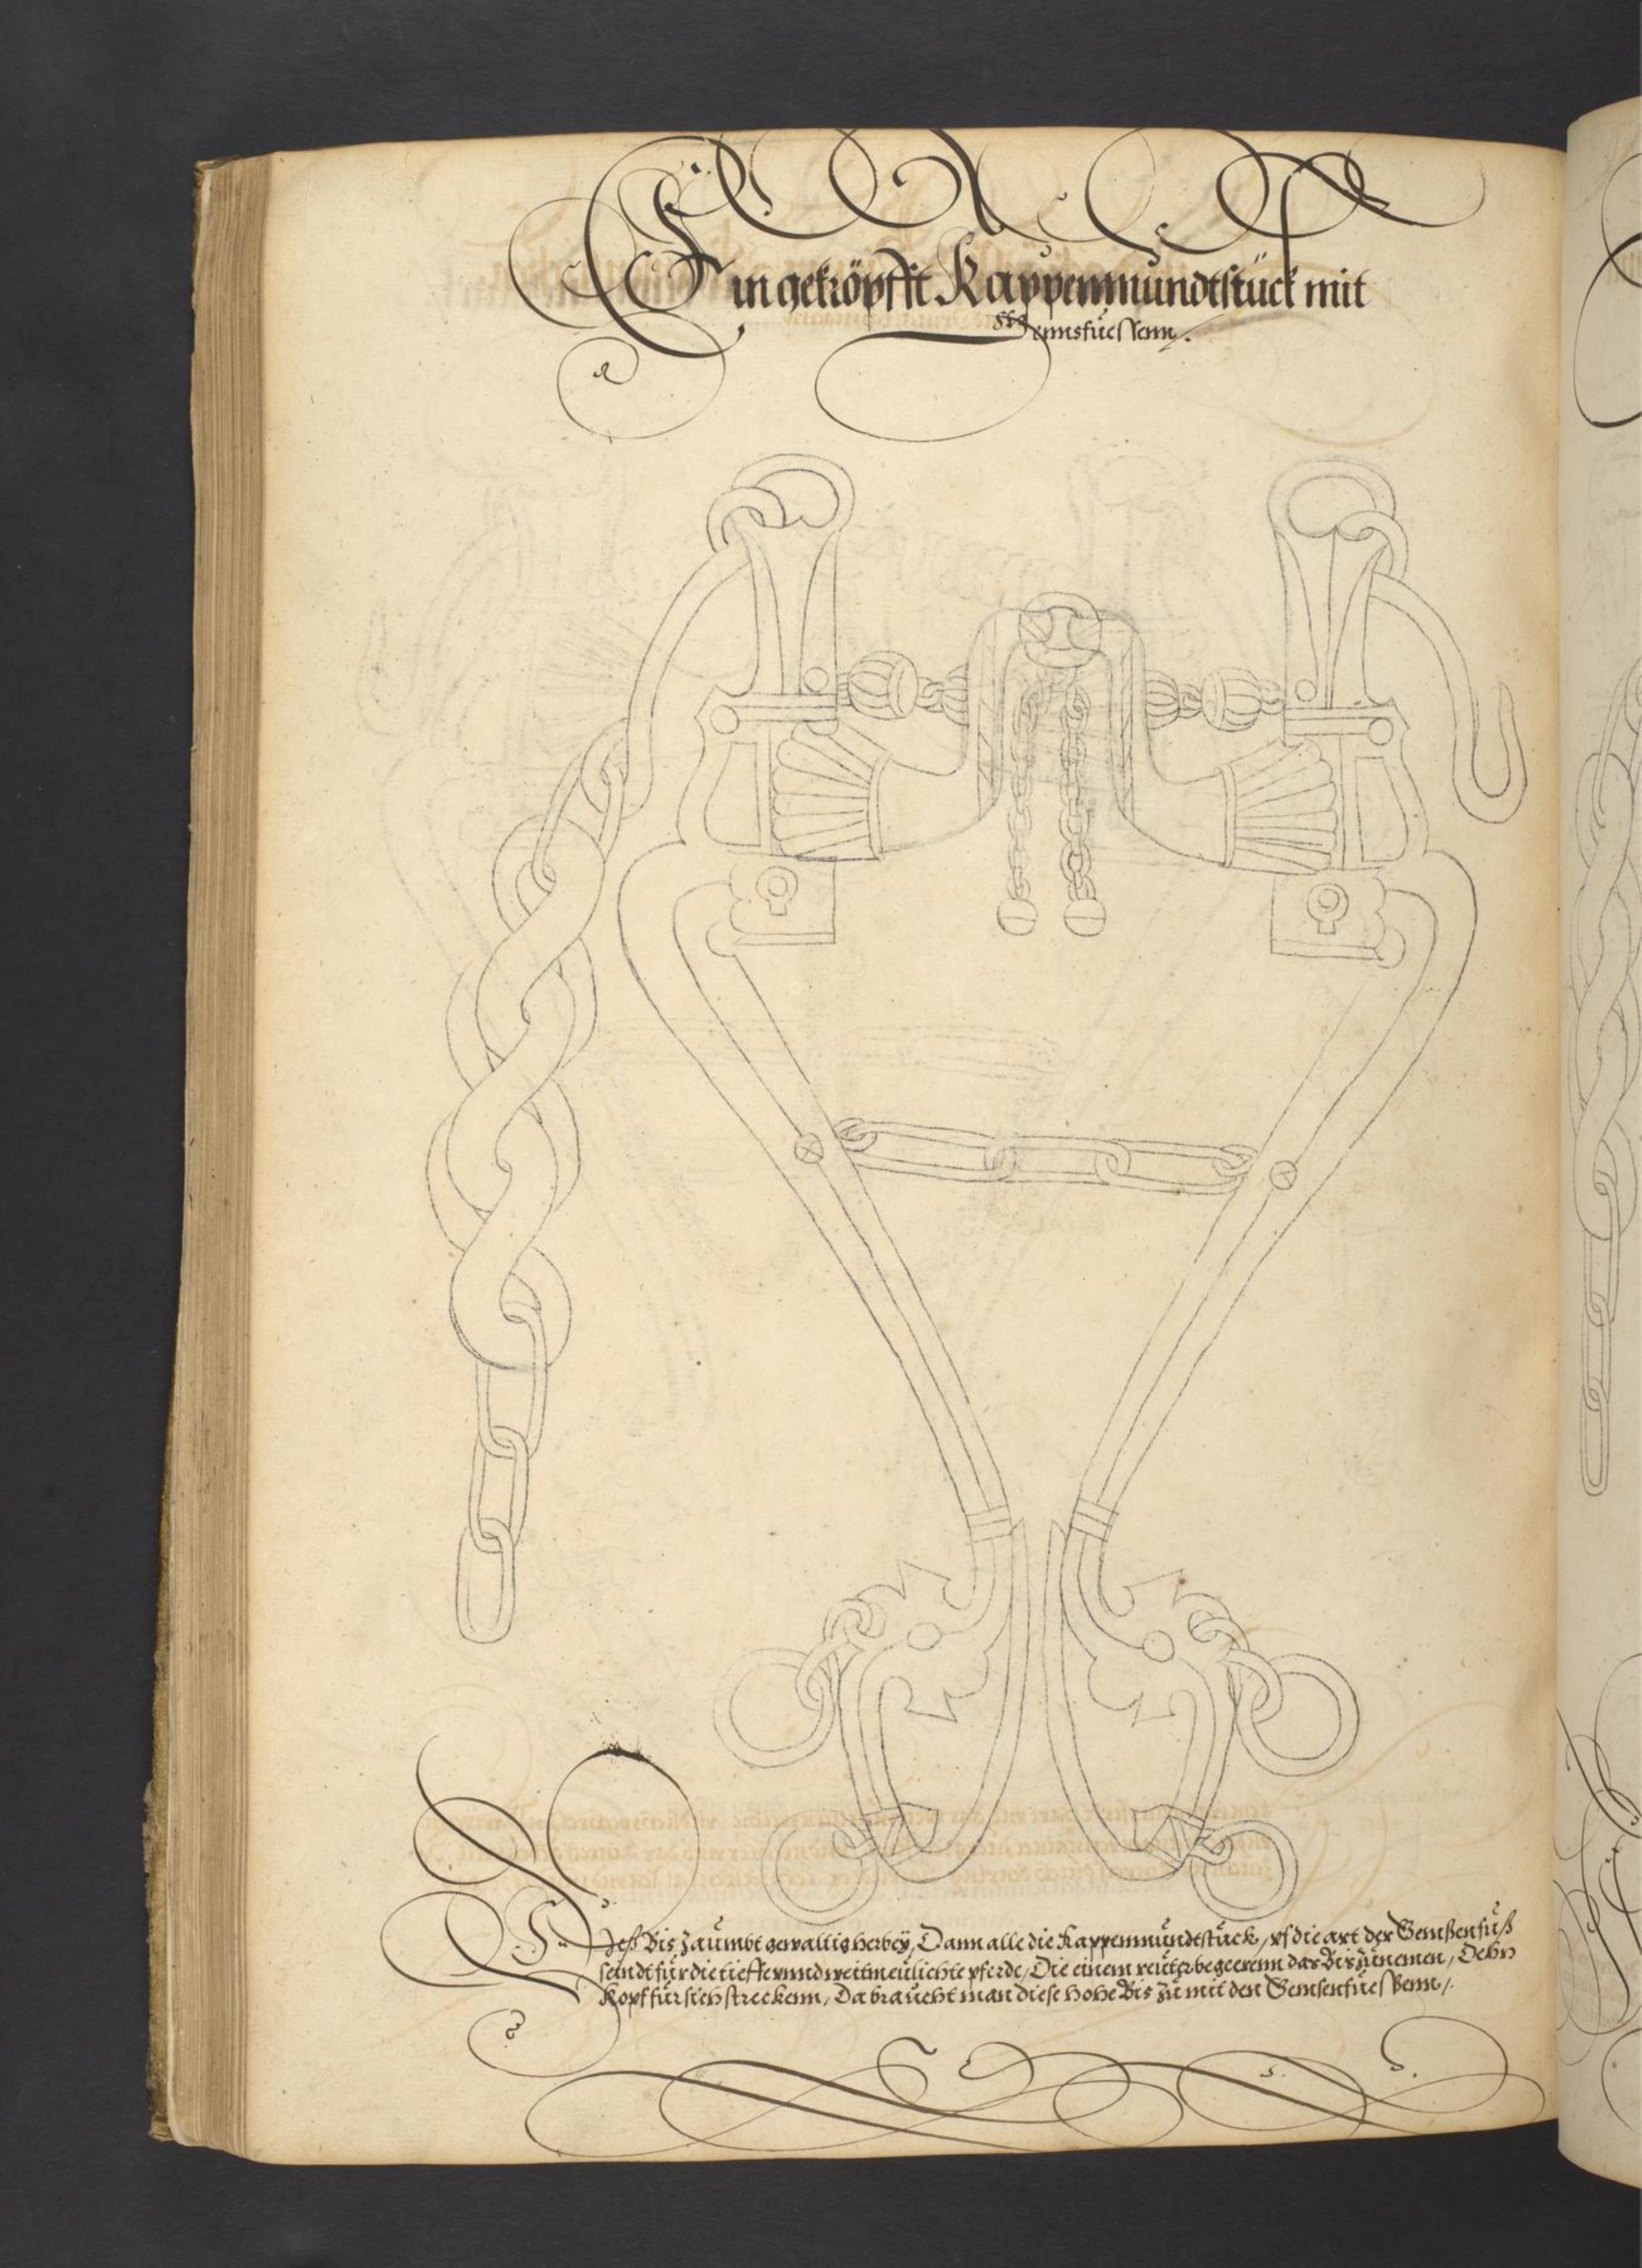 Ein geköpfft Kappenmundtstück mit
Gemsfüessenn.
Deß Bis Zaümbt gewalltig herbeÿ, Dann alle die Kappenmündtstück, vf die art der Gemßenfüß
seindt für die tieffe vnnd weitmeülichte pferde, Die einem reütter begeerenn das Bis zünemen, Oehn
Kopf für sich streckenn, Da braücht man diese hohe Bis zü mit den Gemsenfüeßenn,